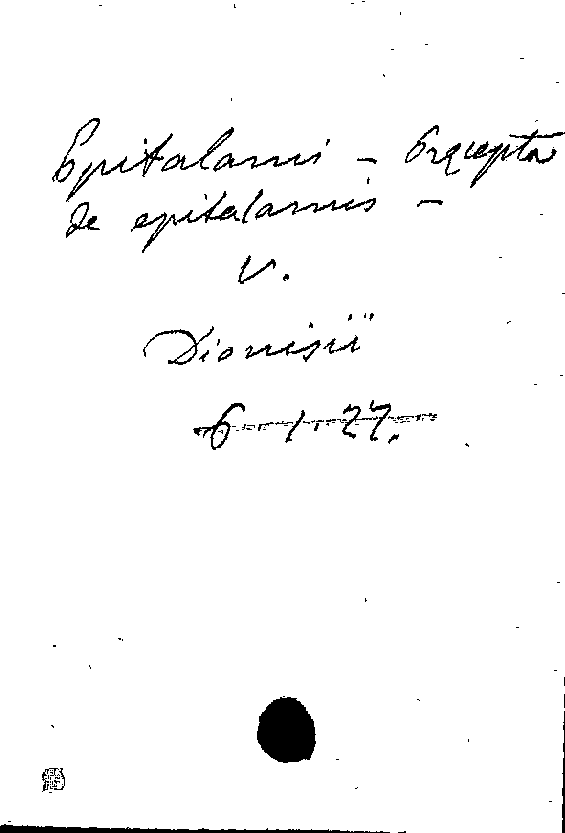 Epitalamis - Precepta
de epitalamis -
V.
Dionisii
6-1-27.